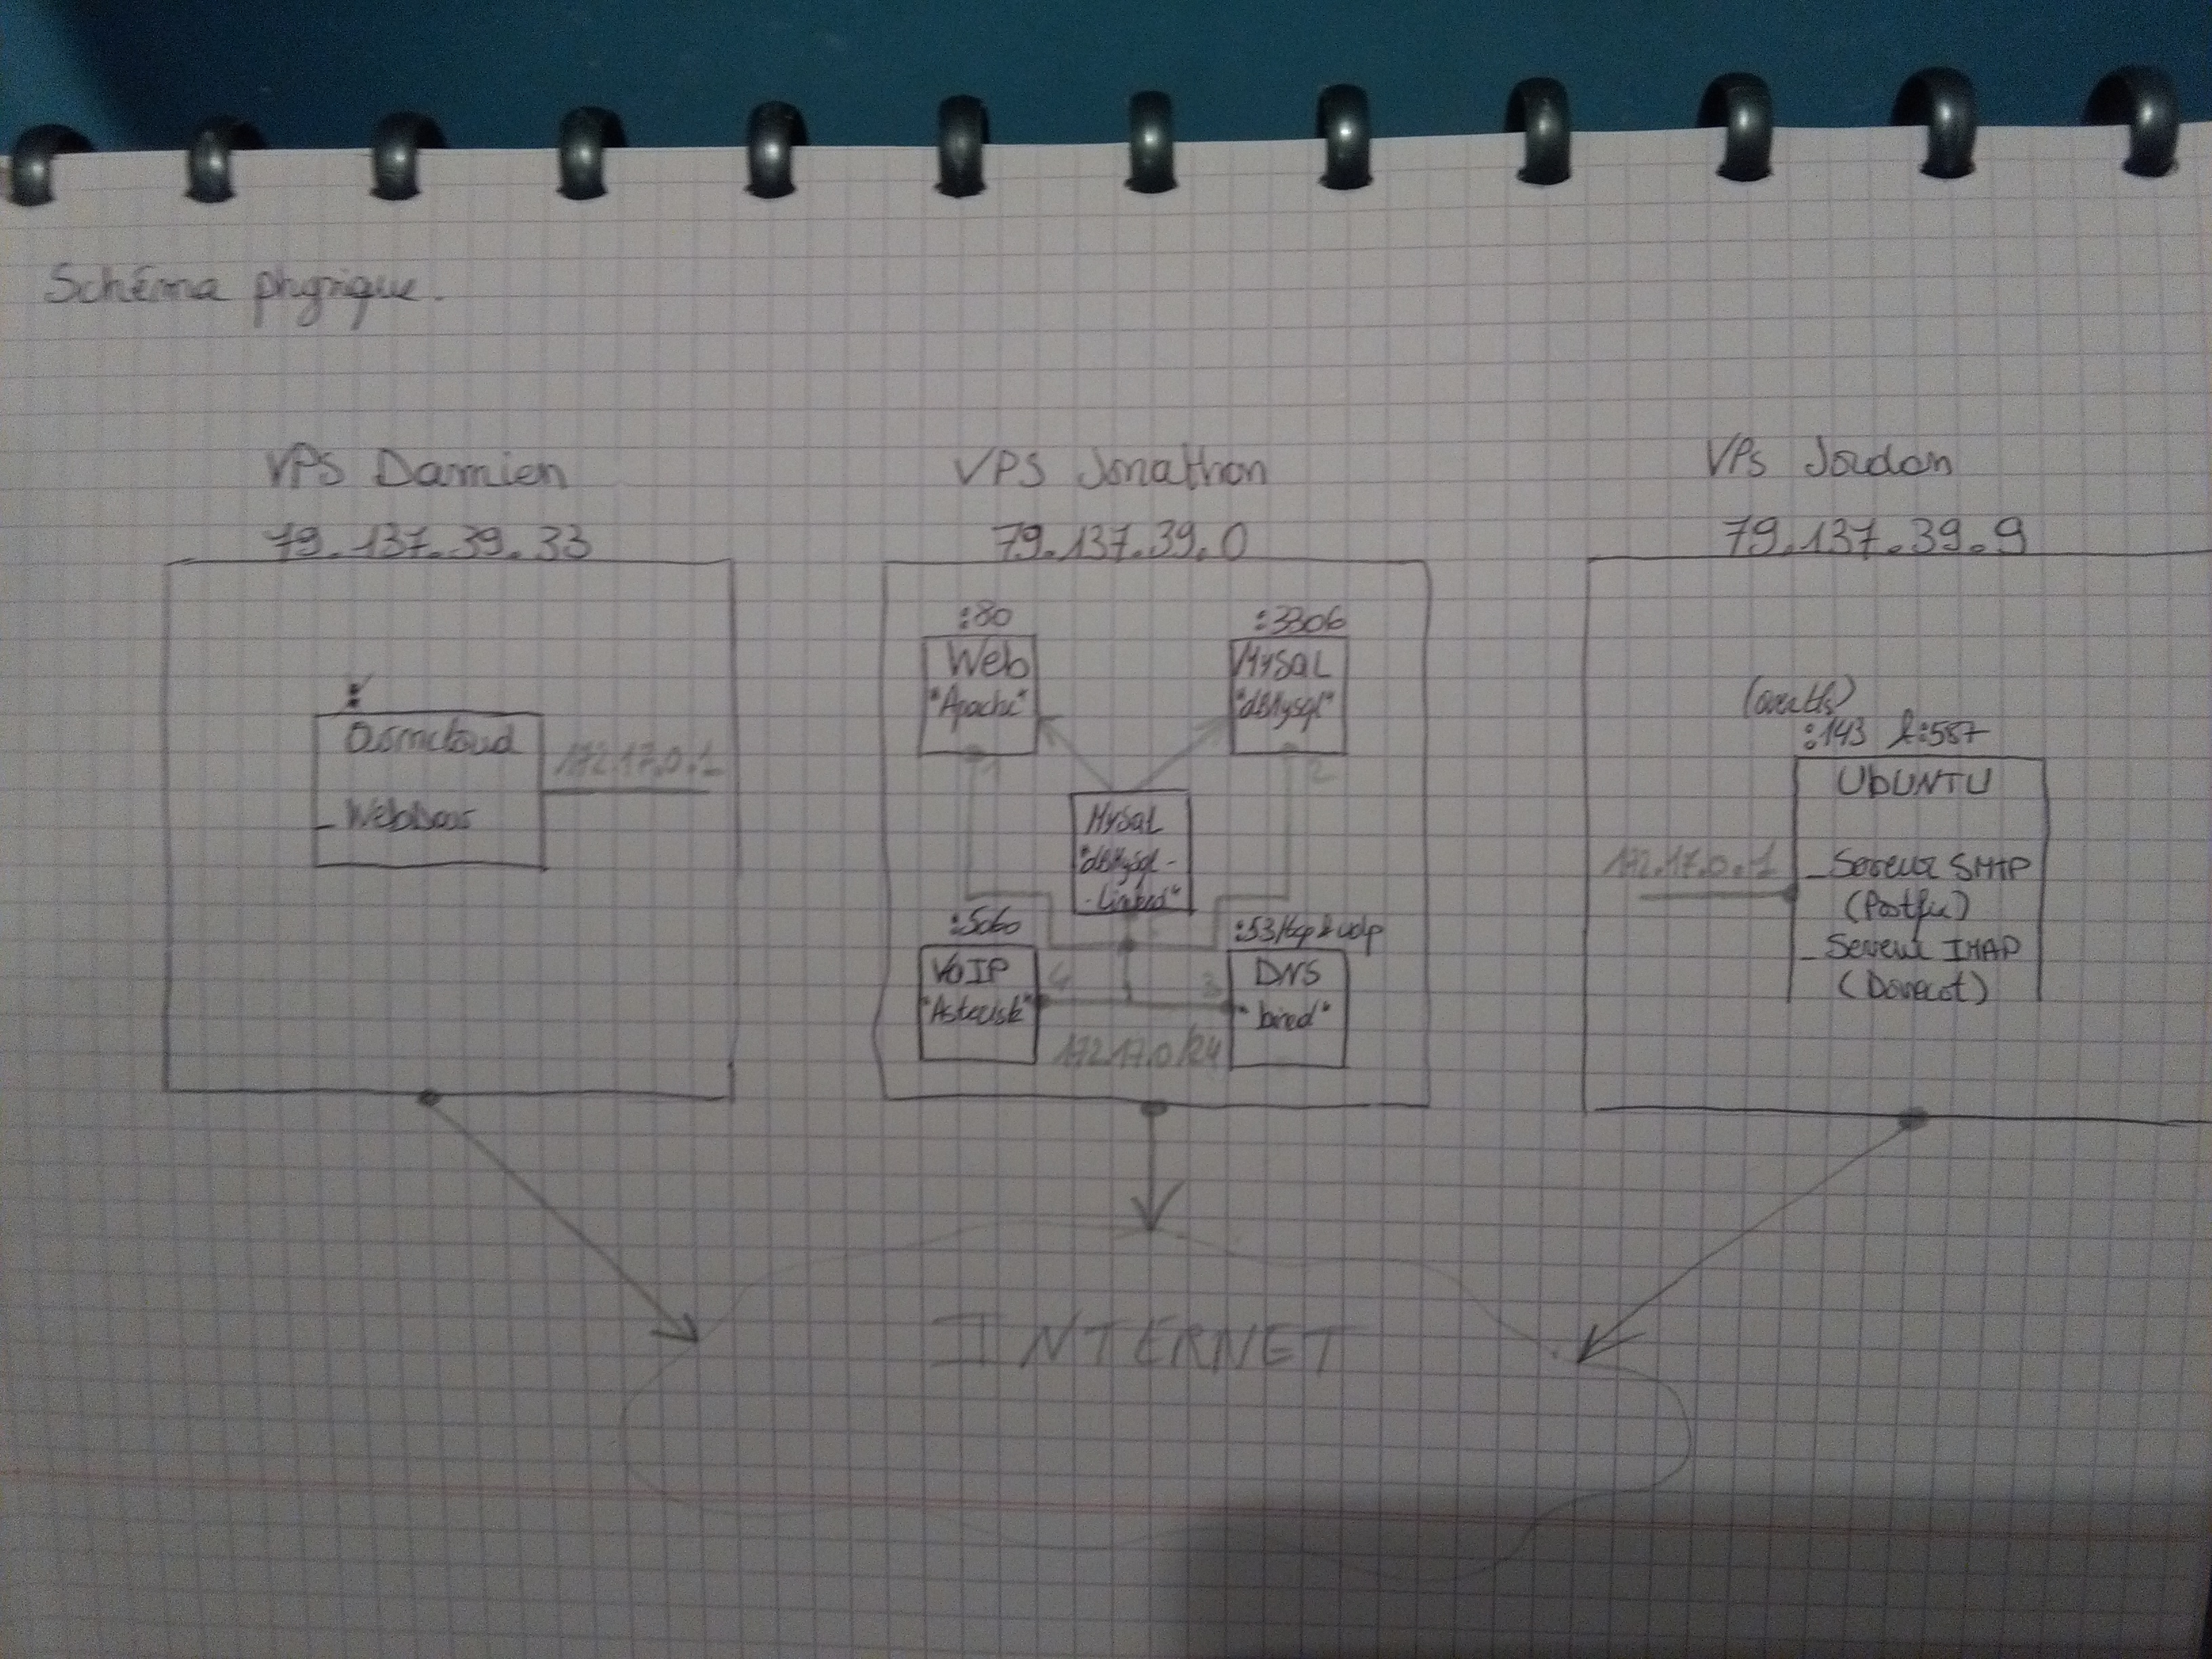 Schéma physique.
VPS Damien
79.137.39.33
:
Owncloud
- WebDav
172.17.0.1
VPS Jonathan
79.137.39.0
:80
Web
"Apache"
1
:3306
MySQL
"dbMysql"
2
MySQL
"dbMysql-
-Linked"
:5060
VoIP
"Asterisk"
4
:53/tcp & udp
DNS
"bind"
3
172.17.0/24
VPS Jordan
79.137.39.9
:143 & :587
UBUNTU
- Serveur SMTP
(Postfix)
- Serveur IMAP
(Dovecot)
172.17.0.1
INTERNET